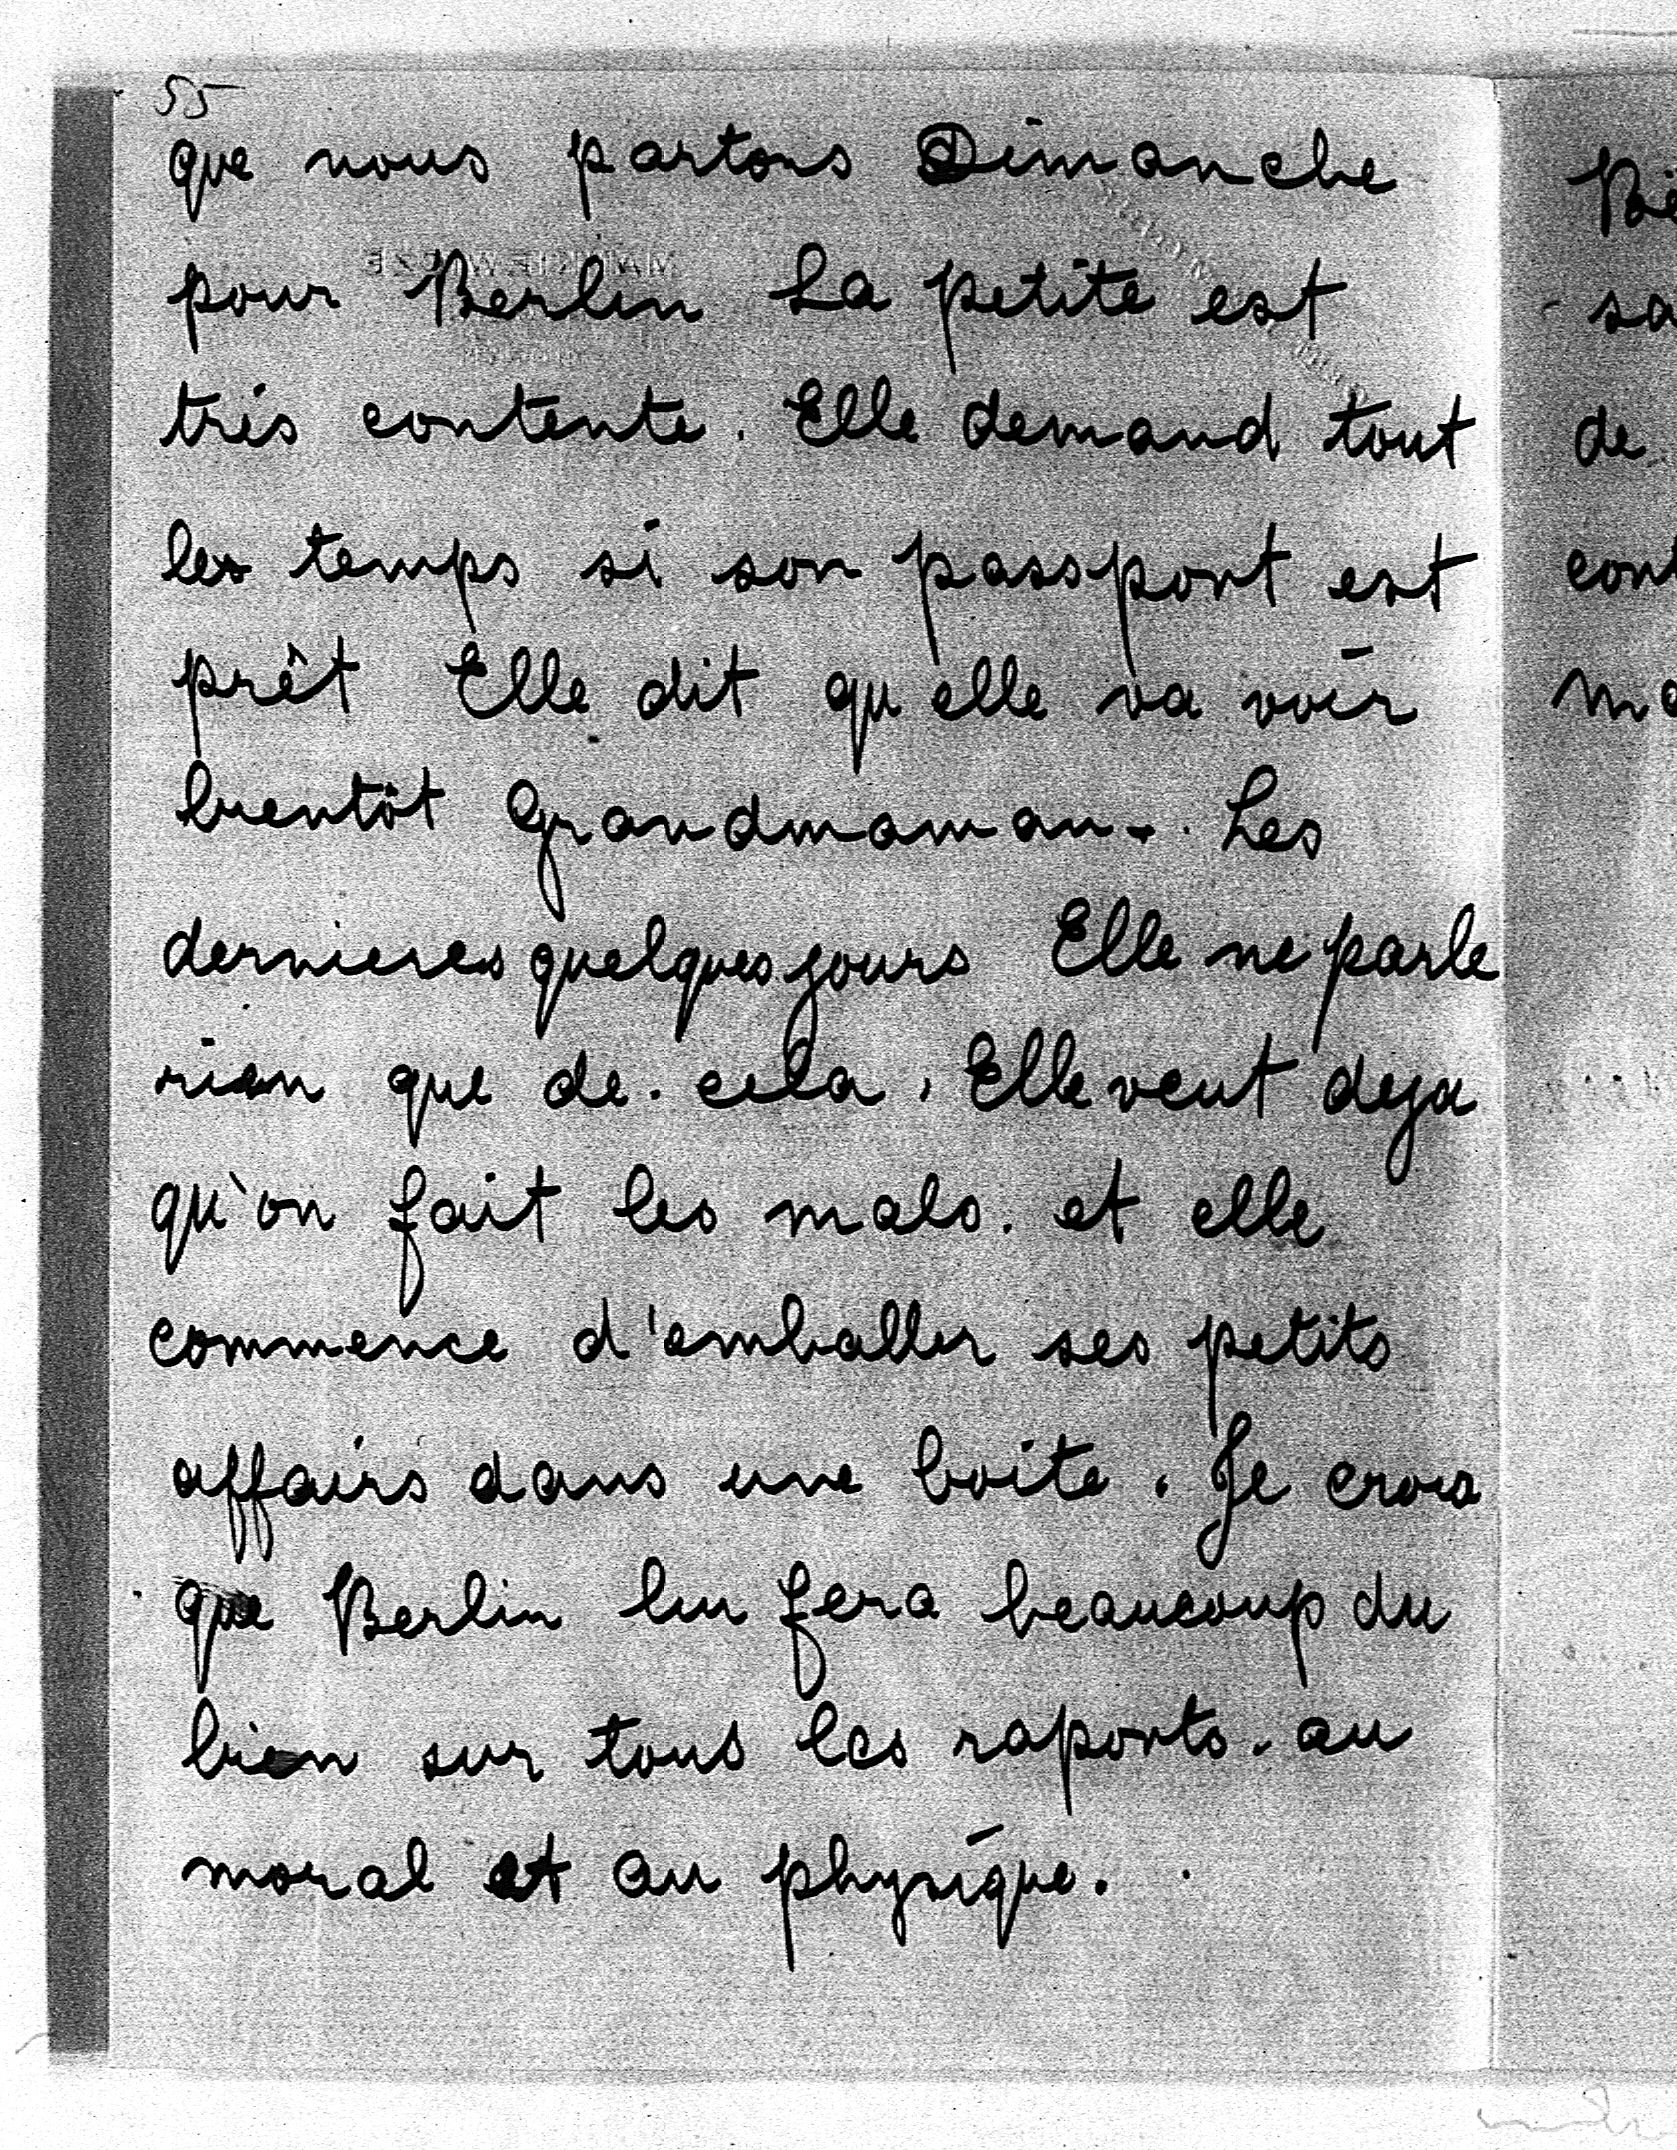 55
que nous partons Dimanche
pour Berlin La petite est
tris contente. Elle demand tout
les temps si son passport est
prêt Elle dit qu elle va voir
bientôt Grandmaman. Les
dernieres quelques jours Elle ne parle
rien que de cela. Elle veut deja
qu'on fait les mals. et elle
commence d'emballer ses petits
affairs dans une boite. Je crois
que Berlin lui fera beaucoup du
bien sur tous les raports. au
moral et au physique.
sa
de